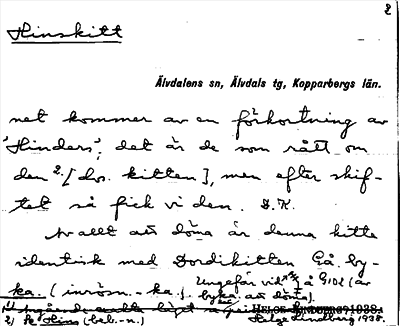 2
Hinskitt
Älvdalens sn, Älvdals tg, Kopparbergs län.
net kommer av en förkortning av
'Hinders', det är de som rått om
den 2. [dvs. kitten], men efter skif-
tet så fick vi den. D.K.
Av allt att döma är denna kitta
identisk med Dordikitten Gå by-
Ungefär vid å G102 (av
ka. (inröm. - ka.) byka att döma).
2) Hins (beb.-n.) Helge Lundberg 1938.